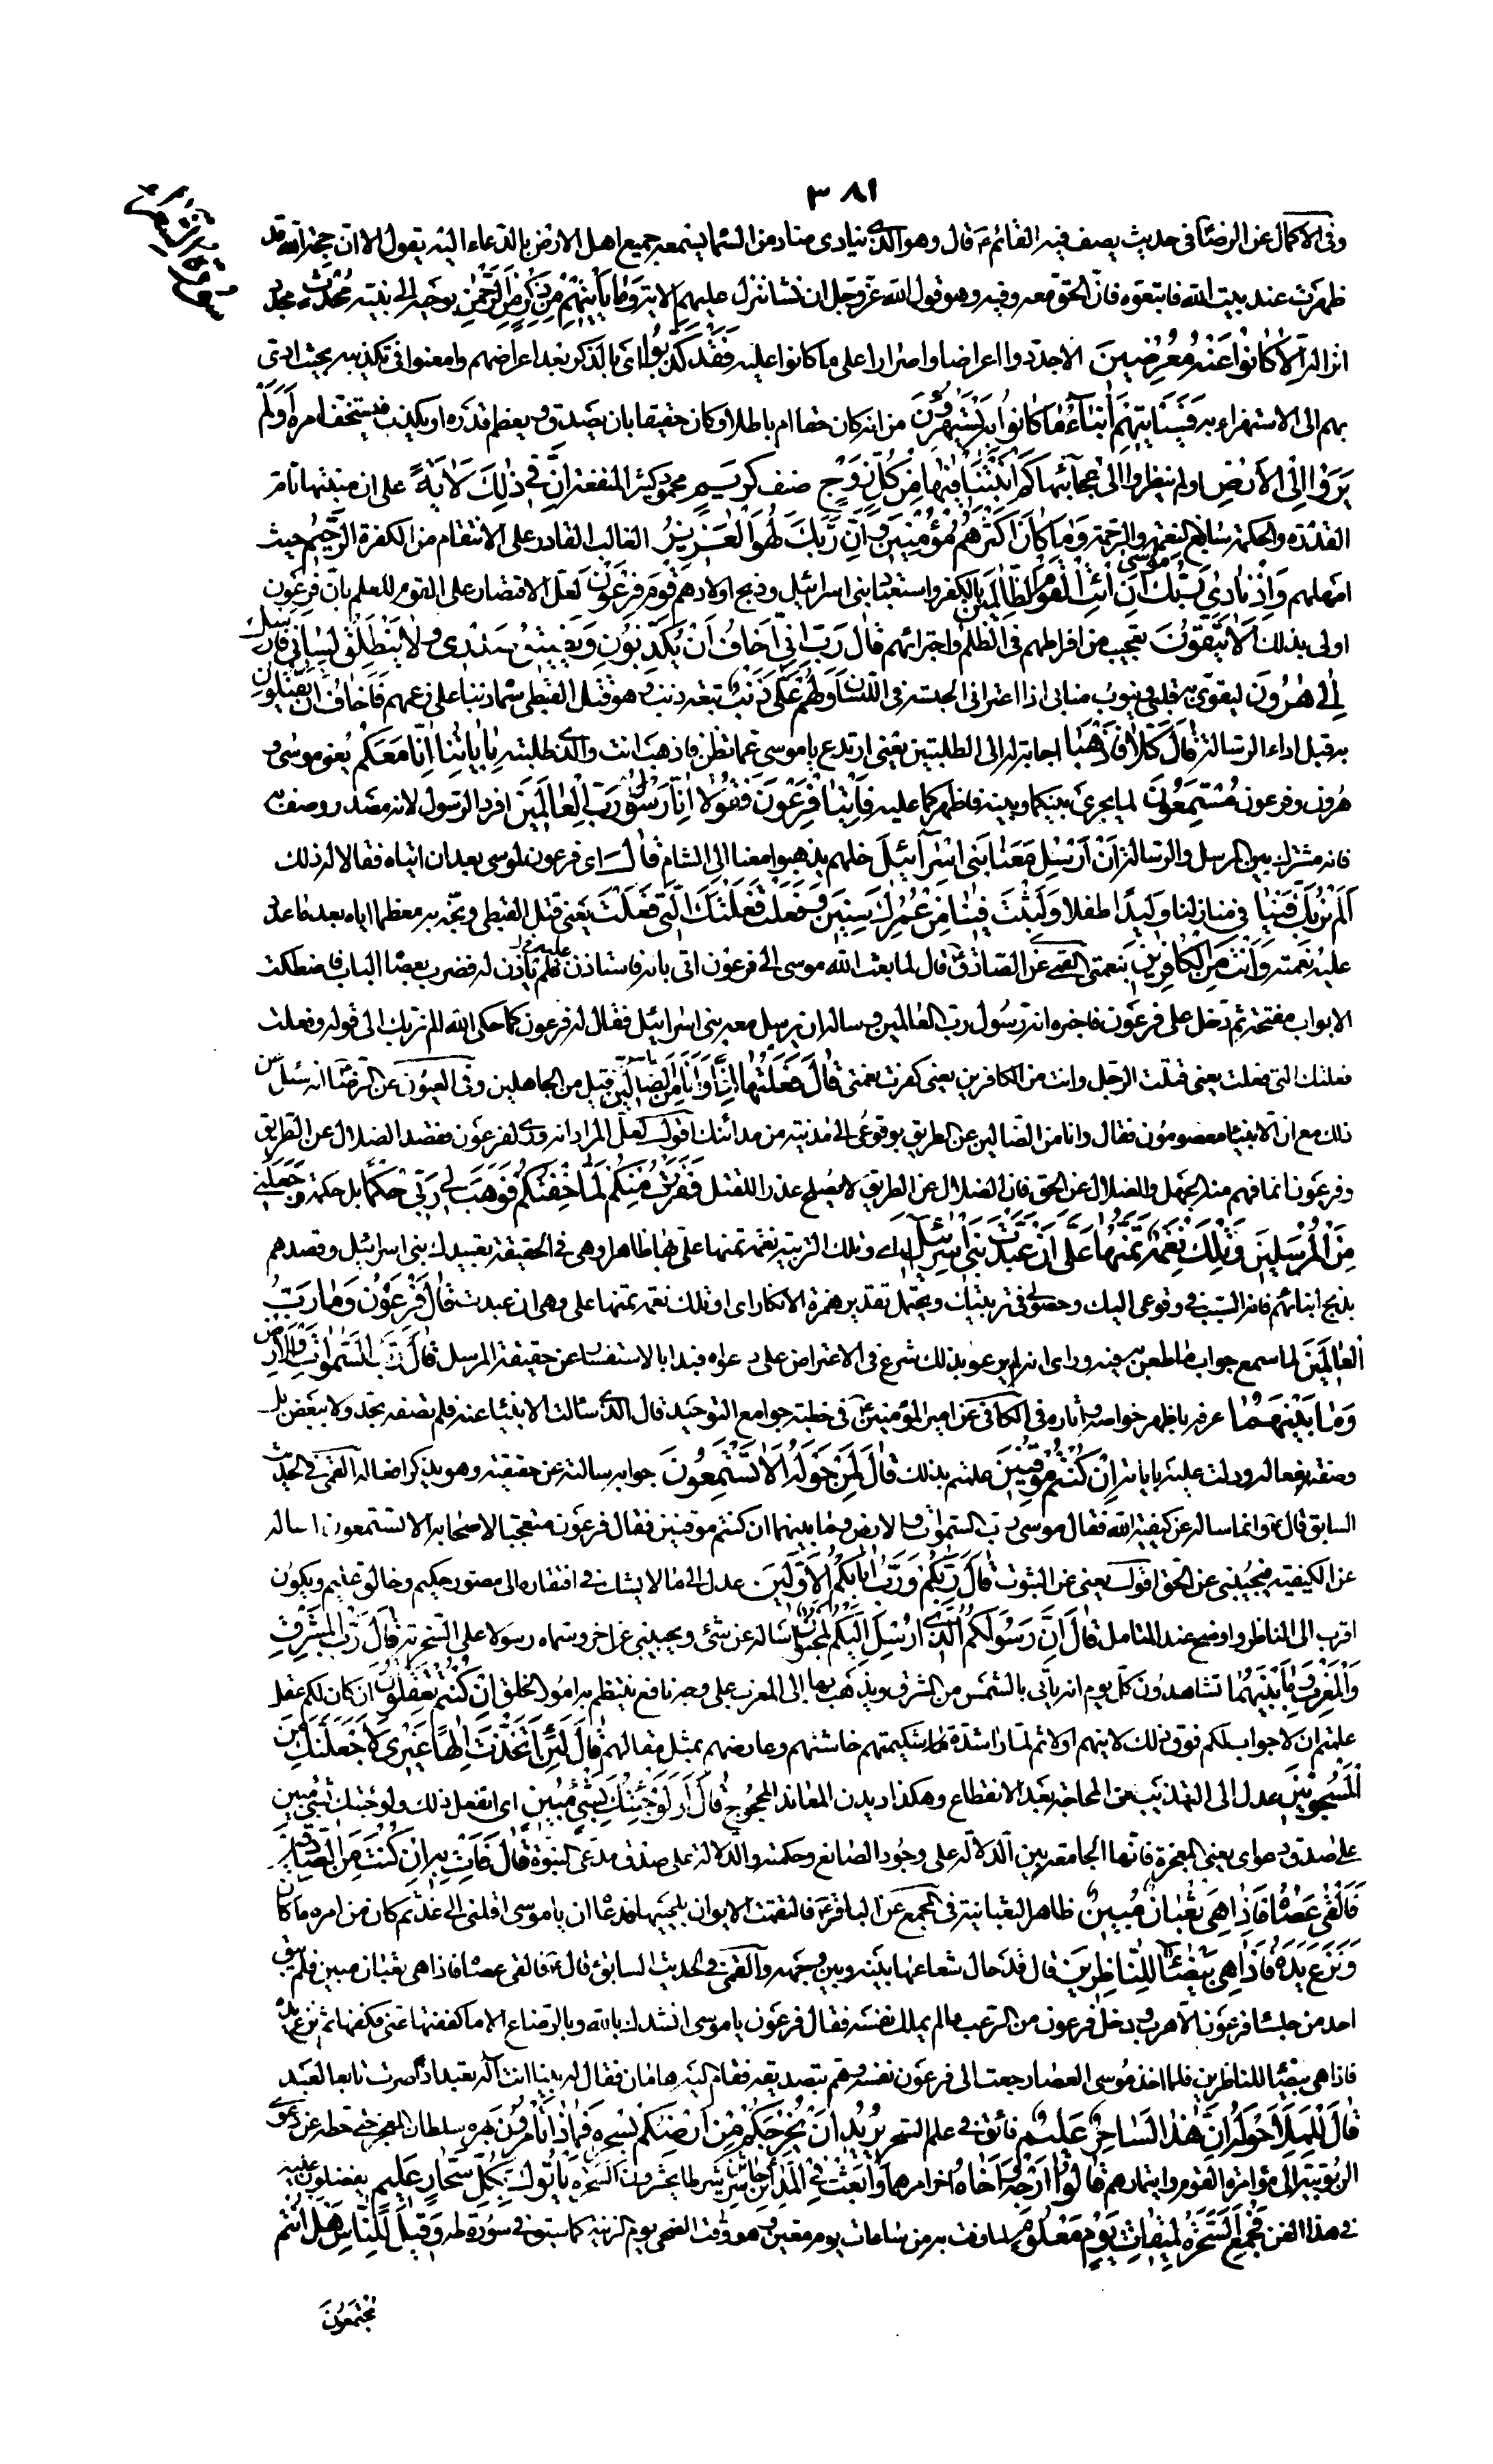 ٣٨١
سورة الشعراء
وفى الاكمال عن الرضا ع فى حديث يصف فيه القائم ع قال وهو الذى ينادى مناد من السماء يسمعه جميع اهل الارض بالدعاء اليه يقول الا ان حجة الله قد
ظهرت عند بيت الله فاتبعوه فان الحق معه وفيه وهو قول الله عز وجل ان نشأ ننزل عليهم الاية وَمَا يَأْتِيهِمْ مِنْ ذِكْرٍ مِنَ الرَّحْمٰنِ يوحيه الى نبيه مُحْدَثٍ مجدد
انزاله إِلَّا كَانُوا عَنْهُ مُعْرِضِينَ الا جددوا اعراضا واصرارا على ما كانوا عليه فَقَدْ كَذَّبُوا اى بالذكر بعد اعراضهم وامعنوا فى تكذيبه بحيث ادى
بهم الى الاستهزاء به فَسَيَأْتِيهِمْ أَنْبَاءُ مَا كَانُوا بِهِ يَسْتَهْزِؤُنَ من انه كان حقا ام باطلا وكان حقيقا بان يصدق ويعظم قدره او يكذب فيستخف امره أَوَلَمْ
يَرَوْا إِلَى الْأَرْضِ اولم ينظروا الى عجائبها كَمْ أَنْبَتْنَا فِيهَا مِنْ كُلِّ زَوْجٍ صنف كَرِيمٍ محمود كثير المنفعة إِنَّ فِي ذٰلِكَ لَآيَةً على ان منبتها تام
القدرة والحكمة سابغ النعمة والرحمة وَمَا كَانَ أَكْثَرُهُمْ مُؤْمِنِينَ وَإِنَّ رَبَّكَ لَهُوَ الْعَزِيزُ الغالب القادر على الانتقام من الكفرة الرَّحِيمُ حيث
امهلهم وَإِذْ نَادَى رَبُّكَ مُوسَى أَنِ ائْتِ الْقَوْمَ الظَّالِمِينَ بالكفر واستعباد بنى اسرائيل وذبح اولادهم قَوْمَ فِرْعَوْنَ لعل الاقتصار على القوم للعلم بان فرعون
اولى بذلك أَلَا يَتَّقُونَ تعجيب من افراطهم فى الظلم واجترائهم قَالَ رَبِّ إِنِّي أَخَافُ أَنْ يُكَذِّبُونِ وَيَضِيقُ صَدْرِي وَلَا يَنْطَلِقُ لِسَانِي فَأَرْسِلْ
إِلَى هٰرُونَ ليقوى به قلبى وينوب منابى اذا اعترانى الحبسة فى اللسان وَلَهُمْ عَلَيَّ ذَنْبٌ تبعة ذنب وهو قتل القبطى سماه ذنبا على زعمهم فَأَخَافُ أَنْ يَقْتُلُونِ
به قبل اداء الرسالة قَالَ كَلَّا فَاذْهَبَا اجابة له الى الطلبتين يعنى ارتدع يا موسى عما تظن فاذهب انت والذى طلبته بِآيَاتِنَا إِنَّا مَعَكُمْ يعنى موسى و
هرون وفرعون مُسْتَمِعُونَ لما يجرى بينكما وبينه فاظهركما عليه فَأْتِيَا فِرْعَوْنَ فَقُولَا إِنَّا رَسُولُ رَبِّ الْعَالَمِينَ افرد الرسول لانه مصدر وصف به
فانه مشترك بين المرسل والرسالة أَنْ أَرْسِلْ مَعَنَا بَنِي إِسْرَآئِيلَ خلهم يذهبوا معنا الى الشام قَالَ اى فرعون لموسى بعد ان اتياه فقالا له ذلك
أَلَمْ نُرَبِّكَ فِينَا فى منازلنا وَلِيدًا طفلا وَلَبِثْتَ فِينَا مِنْ عُمُرِكَ سِنِينَ وَفَعَلْتَ فَعْلَتَكَ الَّتِي فَعَلْتَ يعنى قتل القبطى وبخه به معظما اياه بعد ما عدد
عليه نعمته وَأَنْتَ مِنَ الْكَافِرِينَ بنعمتى القمى عن الصادق ع قال لما بعث الله موسى الى فرعون اتى بابه فاستاذن عليه فلم ياذن له فضرب بعصاه الباب فاصطكت
الابواب مفتحة ثم دخل على فرعون فاخبره انه رسول رب العالمين وساله ان يرسل معه بنى اسرائيل فقال له فرعون كما حكى الله الم نربك الى قوله وفعلت
فعلتك التى فعلت يعنى قتلت الرجل وانت من الكافرين يعنى كفرت نعمتى قَالَ فَعَلْتُهَا إِذًا وَأَنَا مِنَ الضَّالِّينَ قيل من الجاهلين وفى العيون عن الرضا ع انه سئل عن
ذلك مع ان الانبياء معصومون فقال وانا من الضالين عن الطريق بوقوعى الى مدينة من مدائنك اقول لعل المراد انه ورى لفرعون فقصد الضلال عن الطريق
وفرعون انما فهم منه الجهل والضلال عن الحق فان الضلال عن الطريق لا يصلح عذرا للقتل فَفَرَرْتُ مِنْكُمْ لَمَّا خِفْتُكُمْ فَوَهَبَ لِي رَبِّي حُكْمًا بل حكمة وَجَعَلَنِي
مِنَ الْمُرْسَلِينَ وَتِلْكَ نِعْمَةٌ تَمُنُّهَا عَلَيَّ أَنْ عَبَّدْتَ بَنِي إِسْرَائِيلَ اى وتلك التربية نعمة تمنها على بها ظاهرا وهى فى الحقيقة تعبيدك بنى اسرائيل وقصدهم
بذبح ابنائهم فانه السبب فى وقوعى اليك وحصولى فى تربيتك ويحتمل تقدير همزة الانكار اى او تلك نعمة تمنها على وهى ان عبدت قَالَ فِرْعَوْنُ وَمَا رَبُّ
الْعَالَمِينَ لما سمع جواب ما طعن به فيه وراى انه لم يرعو بذلك شرع فى الاعتراض على دعواه فبدأ بالاستفسار عن حقيقة المرسل قَالَ رَبُّ السَّمٰوَاتِ وَالْأَرْضِ
وَمَا بَيْنَهُمَا عرفه باظهر خواصه وآثاره فى الكافى عن امير المؤمنين ع فى خطبة جوامع التوحيد قال الذى سالت الانبياء عنه فلم تصفه بحد ولا ببعض بل
وصفته بفعاله ودلت عليه باياته إِنْ كُنْتُمْ مُوقِنِينَ علمتم بذلك قَالَ لِمَنْ حَوْلَهُ أَلَا تَسْتَمِعُونَ جوابه سالته عن حقيقته وهو يذكر افعاله القمى فى الحديث
السابق قال ع وانما ساله عن كيفية الله فقال موسى رب السموات والارض وما بينهما ان كنتم موقنين فقال فرعون متعجبا لاصحابه الا تستمعون اساله
عن الكيفية فيجيبنى عن الحق اقول يعنى عن الثبوت قَالَ رَبُّكُمْ وَرَبُّ آبَائِكُمُ الْأَوَّلِينَ عدل الى ما لا يشك فى افتقاره الى مصور حكيم وخالق عليم ويكون
اقرب الى الناظر واوضح عند المتامل قَالَ إِنَّ رَسُولَكُمُ الَّذِي أُرْسِلَ إِلَيْكُمْ لَمَجْنُونٌ اساله عن شئ ويجيبنى عن اخر وسماه رسولا على السخرية قَالَ رَبُّ الْمَشْرِقِ
وَالْمَغْرِبِ وَمَا بَيْنَهُمَا تشاهدون كل يوم انه ياتى بالشمس من المشرق ويذهب بها الى المغرب على وجه نافع ينتظم به امور الخلق إِنْ كُنْتُمْ تَعْقِلُونَ ان كان لكم عقل
علمتم ان لا جواب لكم فوق ذلك لاينهم اولا ثم لما راى شدة شكيمتهم خاشنهم وعارضهم بمثل مقالهم قَالَ لَئِنِ اتَّخَذْتَ إِلٰهًا غَيْرِي لَأَجْعَلَنَّكَ مِنَ
الْمَسْجُونِينَ عدل الى التهديد عن المحاجة بعد الانقطاع وهكذا ديدن المعاند المحجوج قَالَ أَوَلَوْ جِئْتُكَ بِشَيْءٍ مُبِينٍ اى اتفعل ذلك ولو جئتك بشئ مبين
على صدق دعواى يعنى المعجزة فانها الجامعة بين الدلالة على وجود الصانع وحكمته والدلالة على صدق مدعى النبوة قَالَ فَأْتِ بِهِ إِنْ كُنْتَ مِنَ الصَّادِقِينَ
فَأَلْقَى عَصَاهُ فَإِذَا هِيَ ثُعْبَانٌ مُبِينٌ ظاهر الثعبانية فى المجمع عن الباقر ع فالتقمت الايوان بلحييها فدعاه ان يا موسى اقلنى الى غد ثم كان من امره ما كان
وَنَزَعَ يَدَهُ فَإِذَا هِيَ بَيْضَاءُ لِلنَّاظِرِينَ قال قد حال شعاعها بينه وبين وجهه والقمى فى الحديث السابق قال ع فالقى عصاه فاذا هى ثعبان مبين فلم يبق
احد من جلساء فرعون الا هرب ودخل فرعون من الرعب ما لم يملك نفسه فقال فرعون يا موسى انشدك بالله وبالرضاع الا ما كففتها عنى فكفها ثم نزع يده
فاذا هى بيضاء للناظرين فلما اخذ موسى العصا رجعت الى فرعون نفسه وهم بتصديقه فقام اليه هامان فقال له بينا انت اله تعبد اذ صرت تابعا لعبد
قَالَ لِلْمَلَإِ حَوْلَهُ إِنَّ هٰذَا لَسَاحِرٌ عَلِيمٌ فائق فى علم السحر يُرِيدُ أَنْ يُخْرِجَكُمْ مِنْ أَرْضِكُمْ بِسِحْرِهِ فَمَاذَا تَأْمُرُونَ بهره سلطان المعجزة حتى حطه عن دعوى
الربوبية الى مؤامرة القوم وايتمارهم قَالُوا أَرْجِهْ وَأَخَاهُ اخر امرهما وَابْعَثْ فِي الْمَدَائِنِ حَاشِرِينَ شرطا يحشرون السحرة يَأْتُوكَ بِكُلِّ سَحَّارٍ عَلِيمٍ يفضلون عليه
فى هذا الفن فَجُمِعَ السَّحَرَةُ لِمِيقَاتِ يَوْمٍ مَعْلُومٍ لما وقت به من ساعات يوم معين وهو وقت الضحى يوم الزينة كما سبق فى سورة طه وَقِيلَ لِلنَّاسِ هَلْ أَنْتُمْ
مُجْتَمِعُونَ